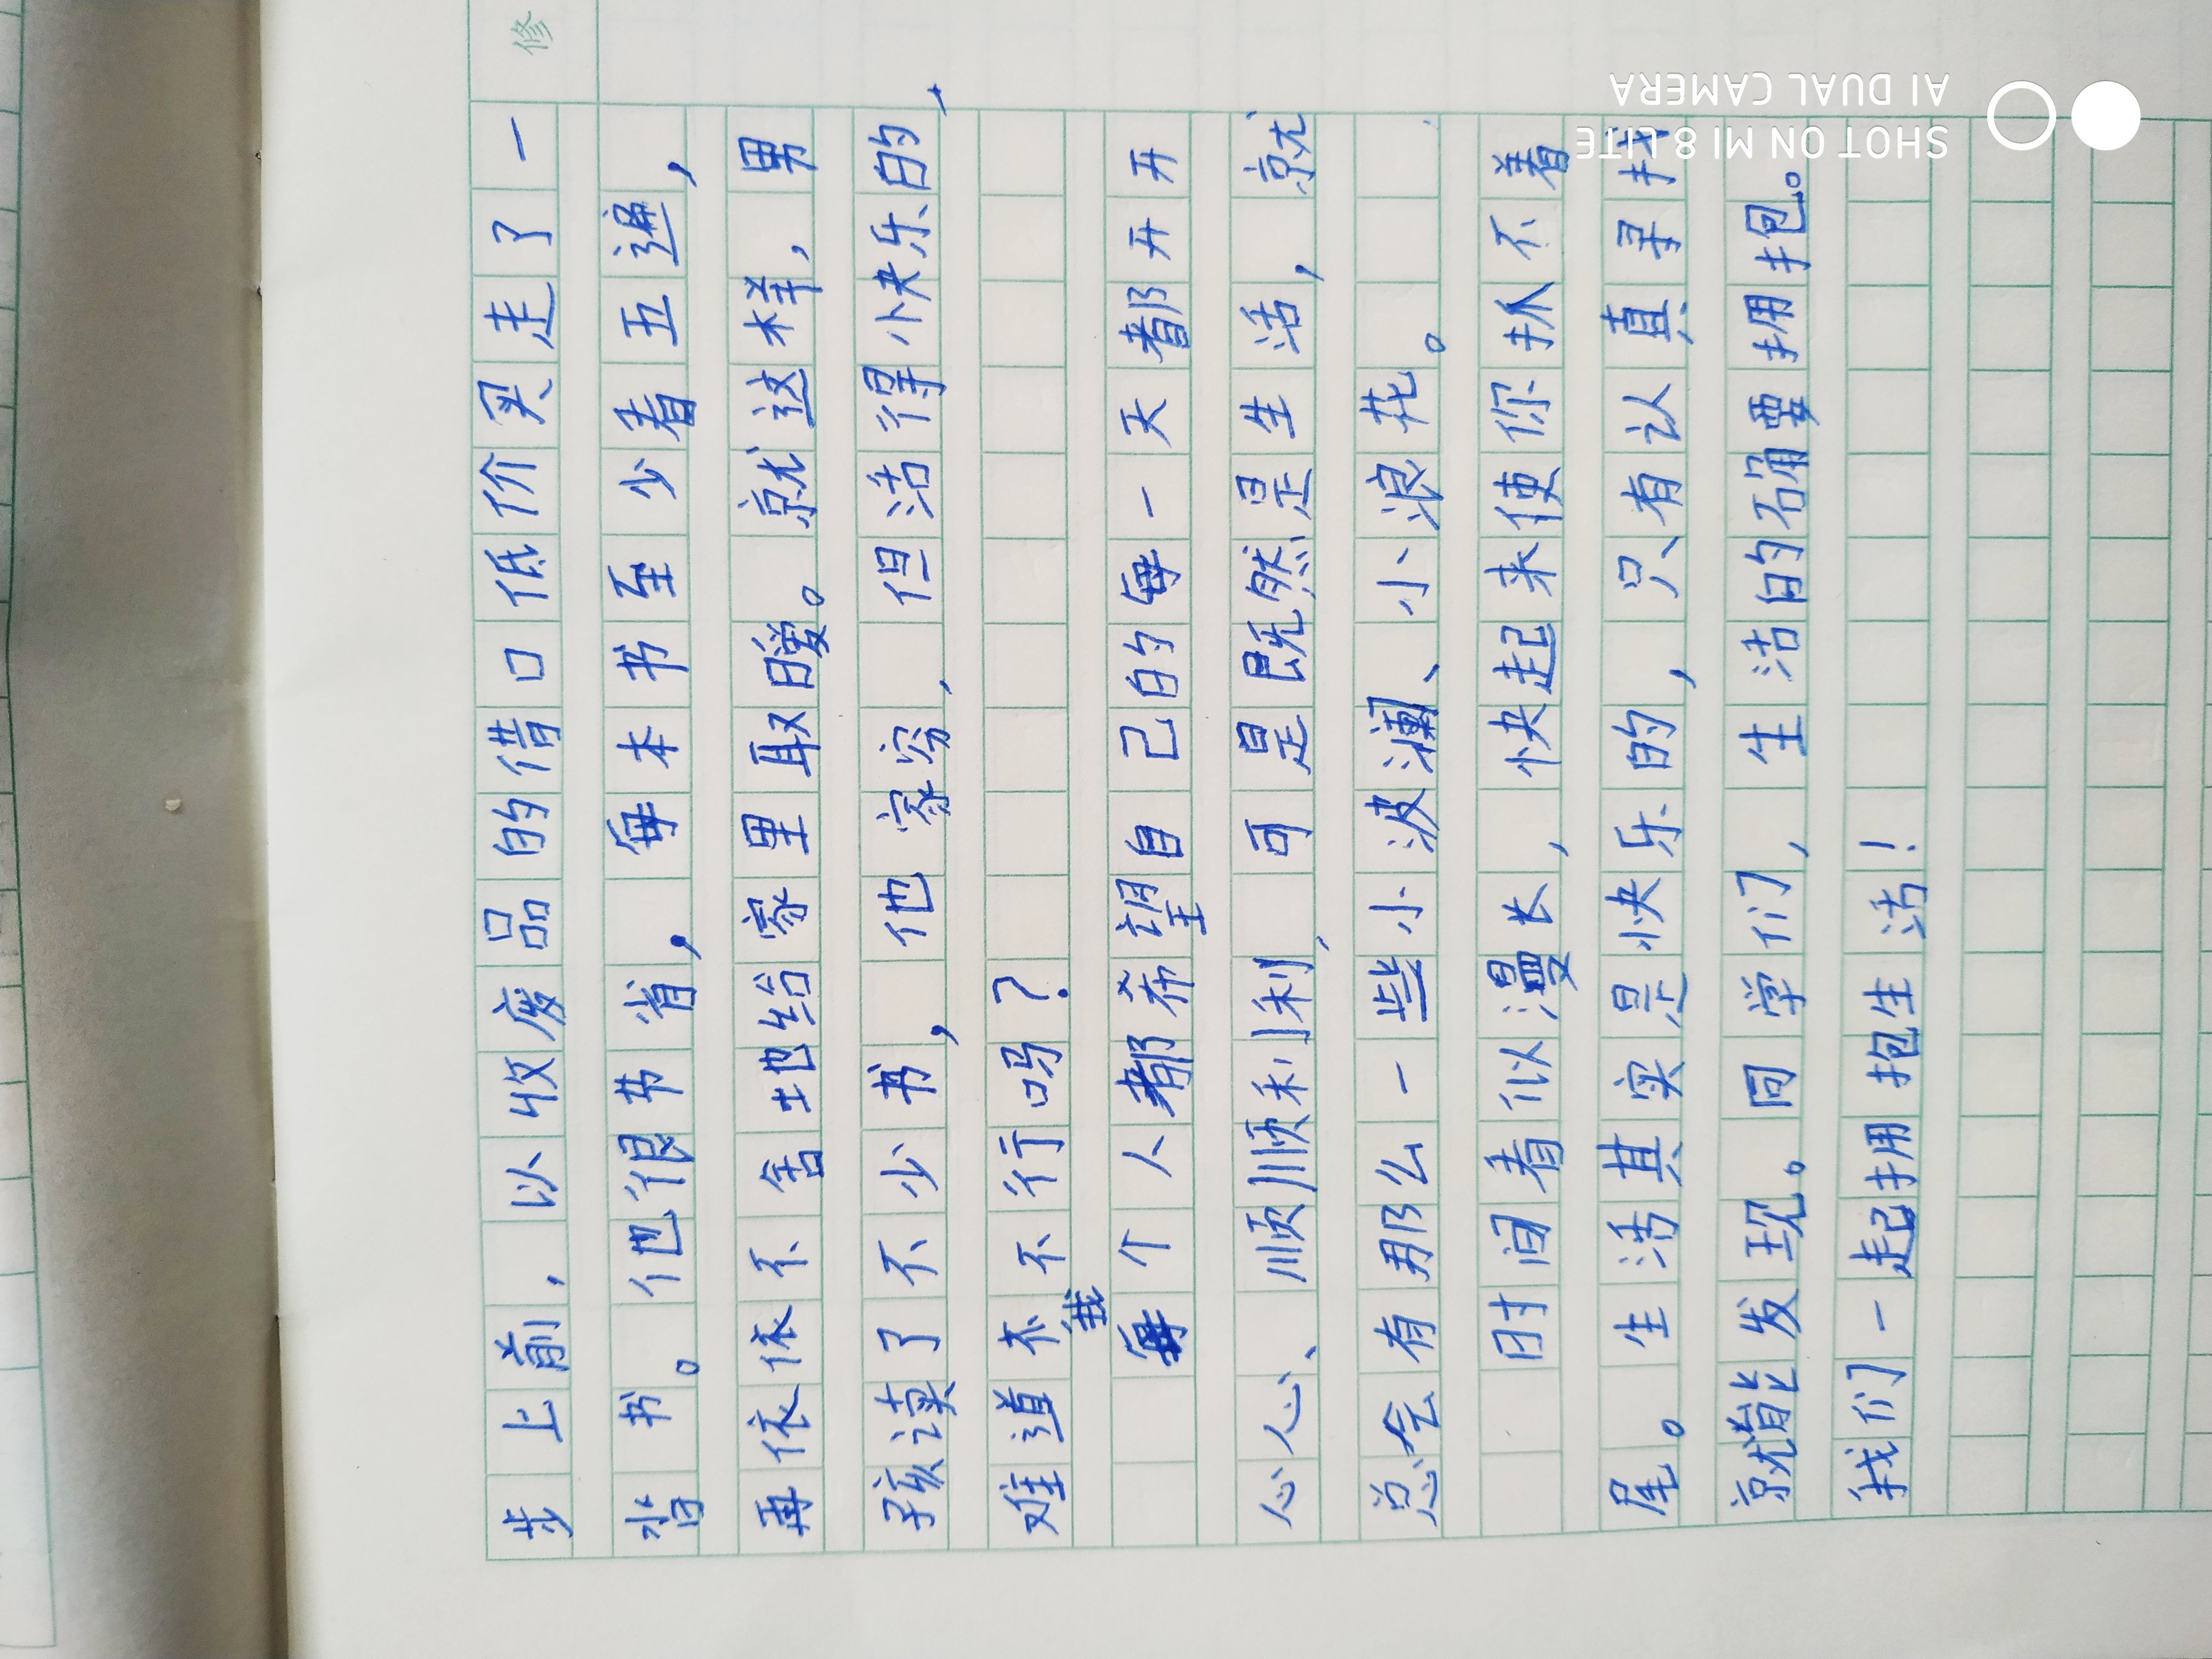 修
步上前，以收废品的借口低价买走了一
沓书。他很节省，每本书至少看五遍，
再依依不舍地给家里取暖。就这样，男
孩读了不少书，他家穷，但活得小快乐的，
难道不行吗？
每个人都希望自己的每一天都开开
心心、顺顺利利，可是既然是生活，就
总会有那么一些小波澜、小浪花。
时间看似漫长，快起来使你抓不着
尾。生活其实是快乐的，只有认真寻找
就能发现。同学们，生活的确要拥抱。
我们一起拥抱生活！
SHOT ON MI 8 LITE
AI DUAL CAMERA